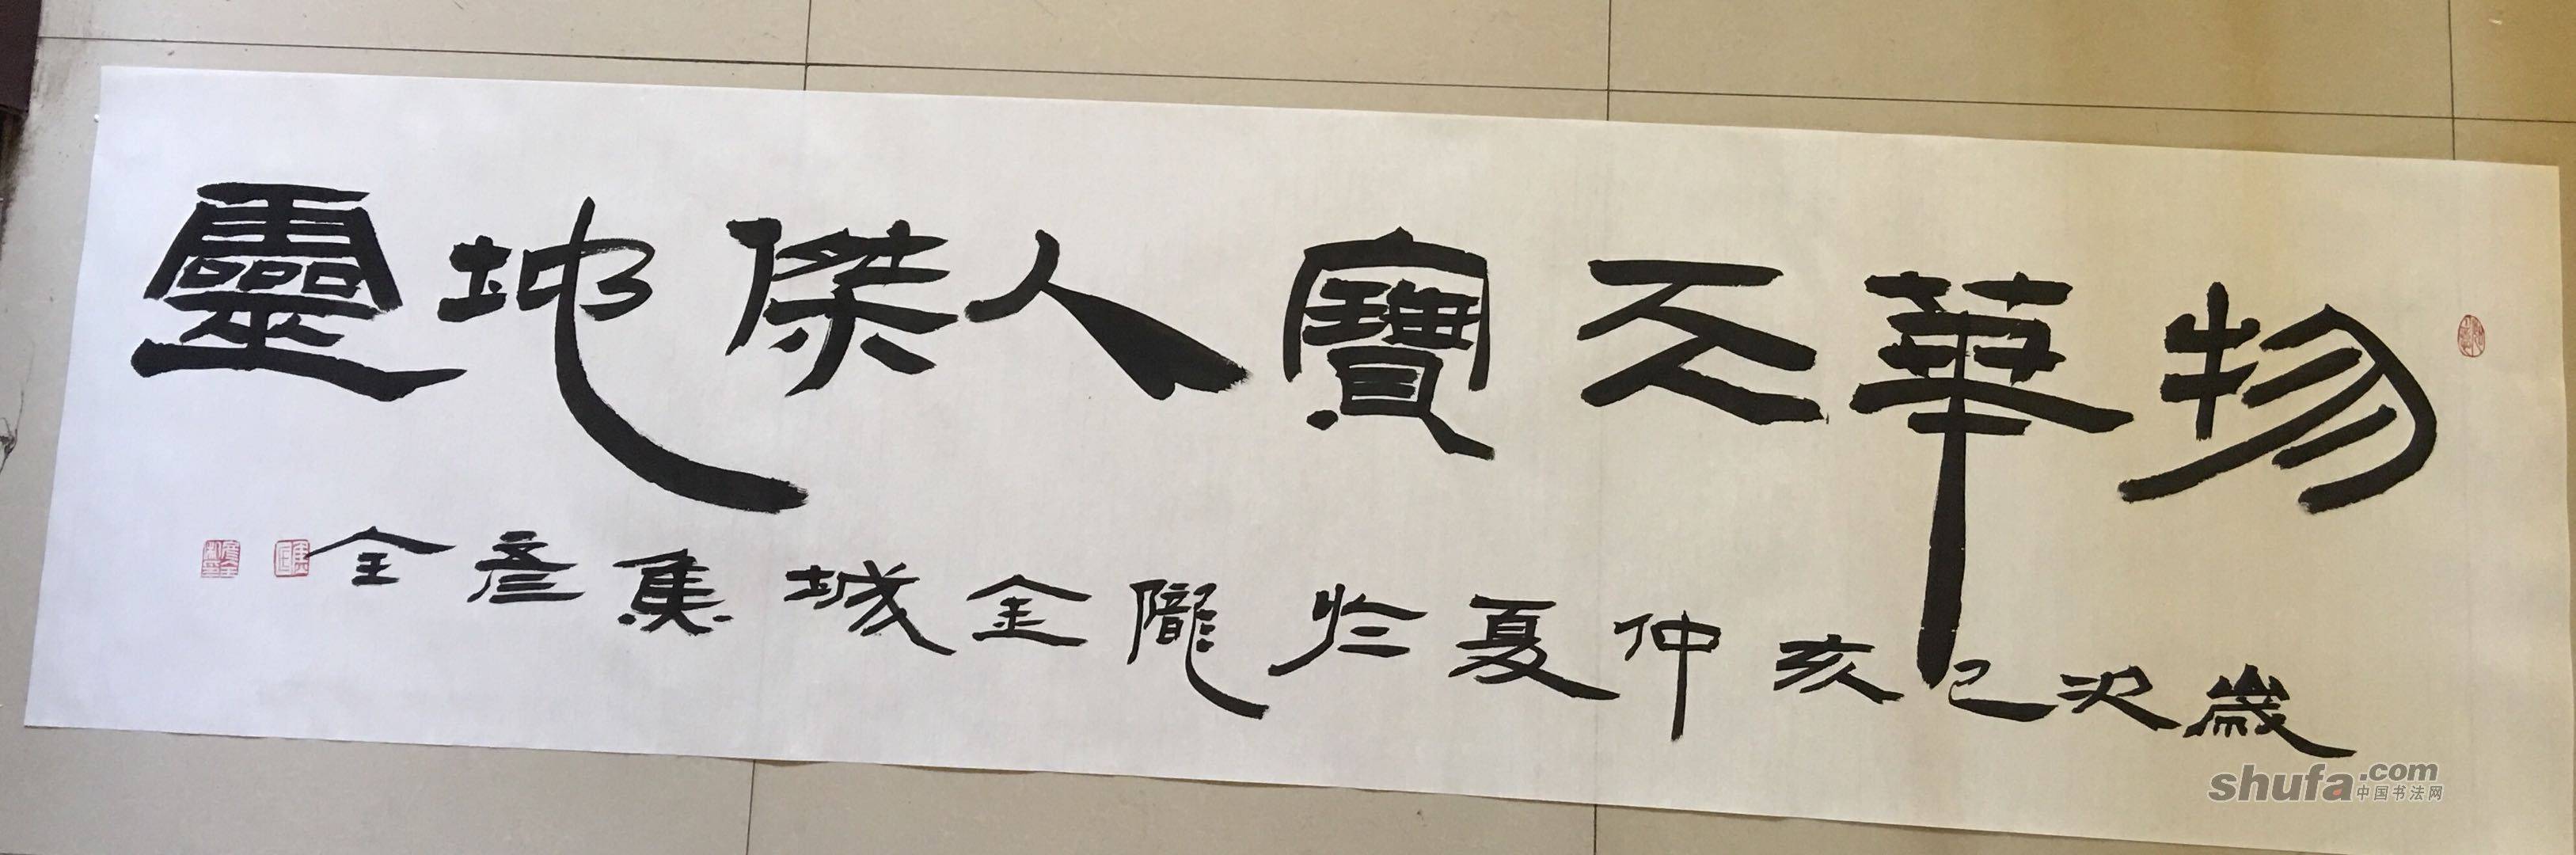 物華天寶人傑地靈
歲次己亥仲夏於隴金城集彥全
shufa.com
中国书法网